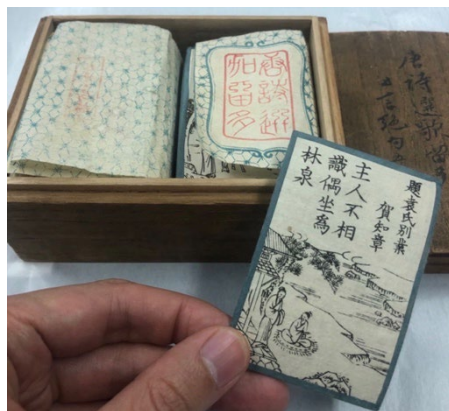 唐詩選
加留多
唐詩選歌留
五言絶句
題袁氏別業
賀知章
主人不相
識偶坐為
林泉